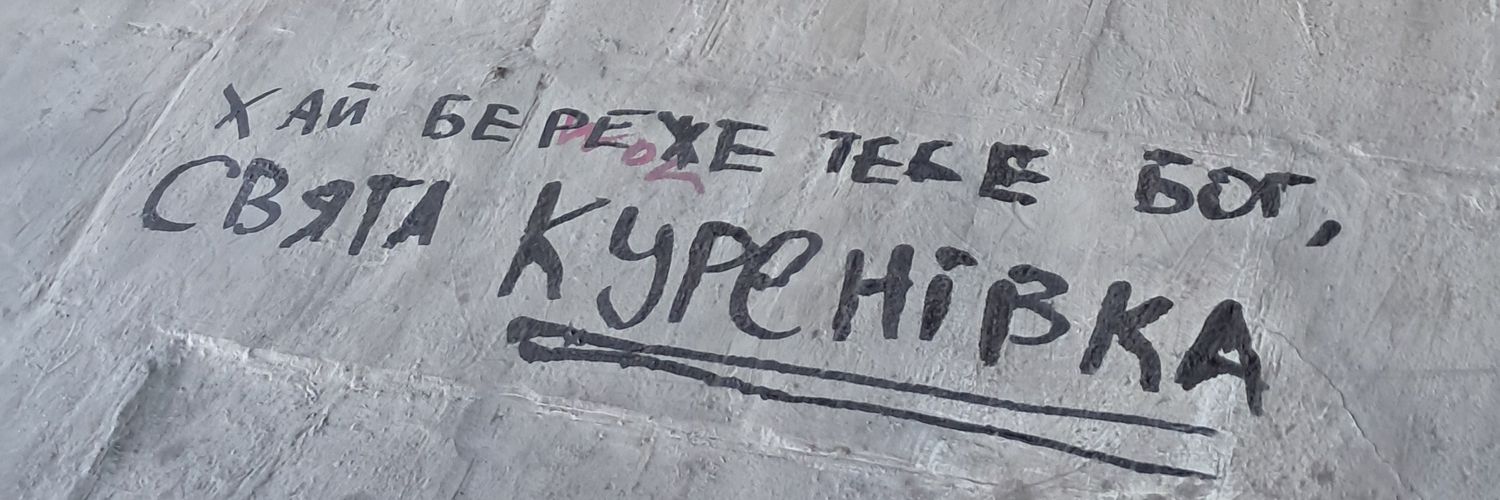 ХАЙ БЕРЕЖЕ ТЕБЕ БОГ,
СВЯТА КУРЕНІВКА